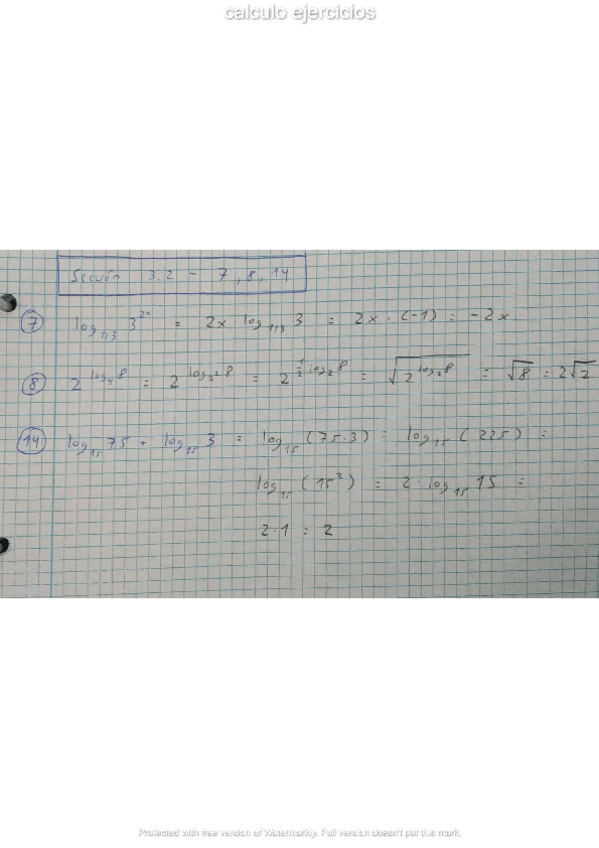 calculo ejercicios
Sección 3.2 - 7, 8, 14
⑦ log₁/₃ 3^(2x) = 2x · log₁/₃ 3 = 2x · (-1) = -2x
⑧ 2^(log₄ 8) = 2^(log₂² 8) = 2^(½ log₂ 8) = √(2^(log₂ 8)) = √8 = 2√2
⑭ log₁₅ 75 + log₁₅ 3 = log₁₅ (75·3) = log₁₅ (225) =
log₁₅ (15²) = 2 · log₁₅ 15 =
2·1 = 2
Protected with free version of Watermarkly. Full version doesn't put this mark.